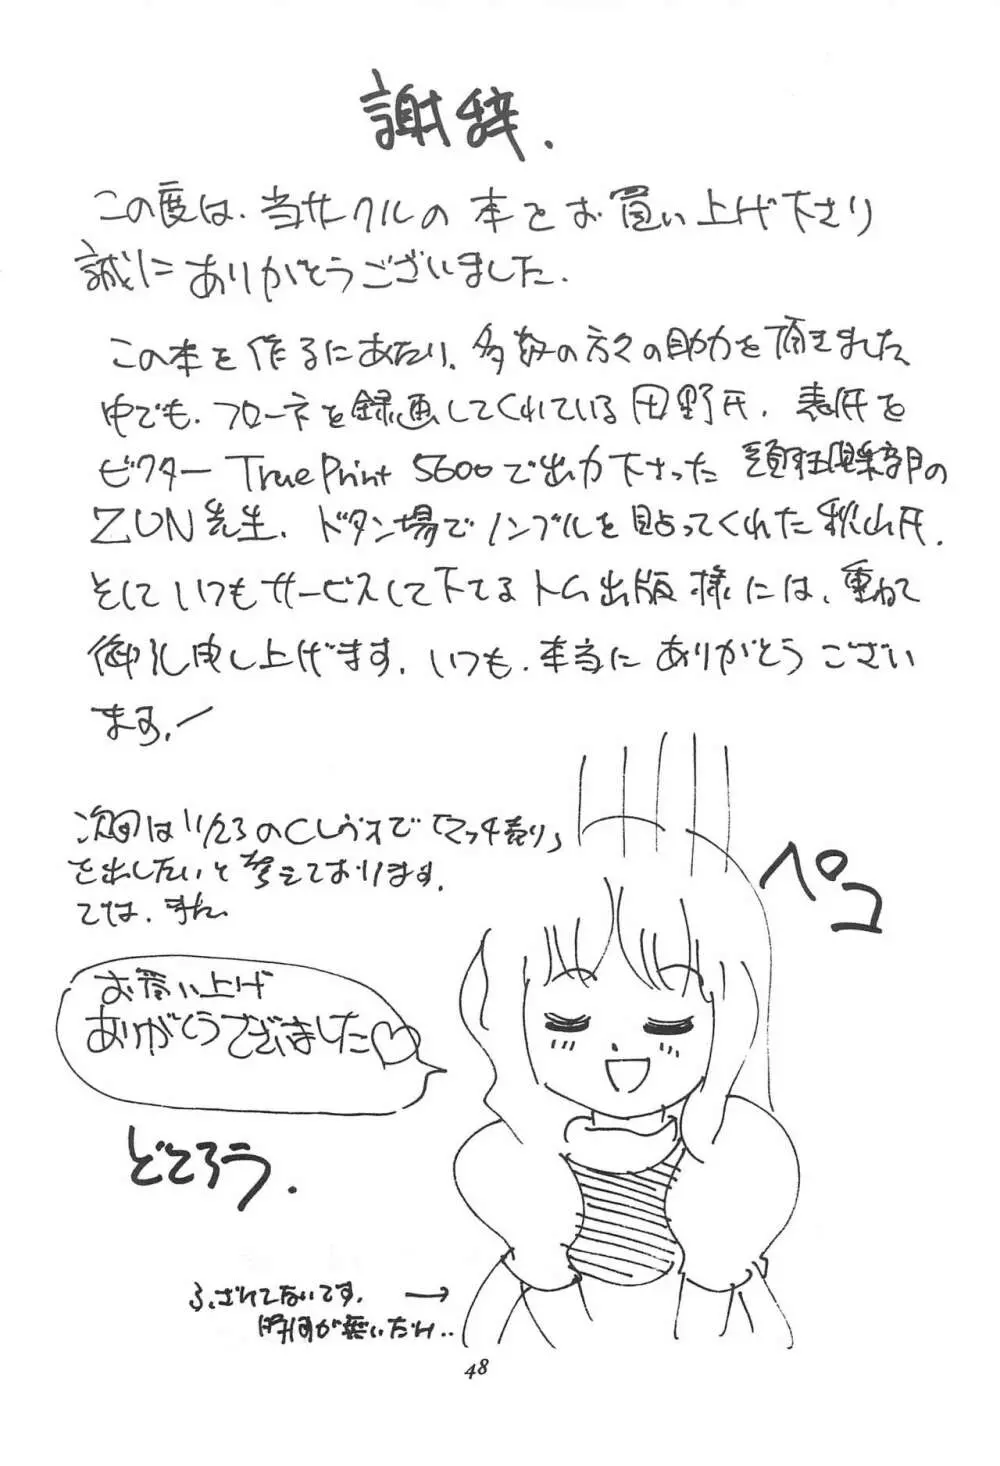 謝辞.
この度は、当サークルの本をお買い上げ下さり
誠にありがとうございました.
この本を作るにあたり、多数の方々の助力を頂きました
中でも、フローネを録画してくれている田野氏、表紙を
ビクター True Print 5600で出力下さった 頭狂倶楽部の
ZUN先生、ドタン場でノンブルを貼ってくれた秋山氏、
そしていつもサービスして下てるトム出版様には、重ねて
御礼申し上げます. いつも、本当にありがとうござい
ます.
次回は11/23のCレヴォで「マッチ売り」
を出したいと考えております.
では、また、
ペコ
お買い上げ
ありがとうございました♡
どころう.
ふざけてないです. →
時間が無いだけ..
48